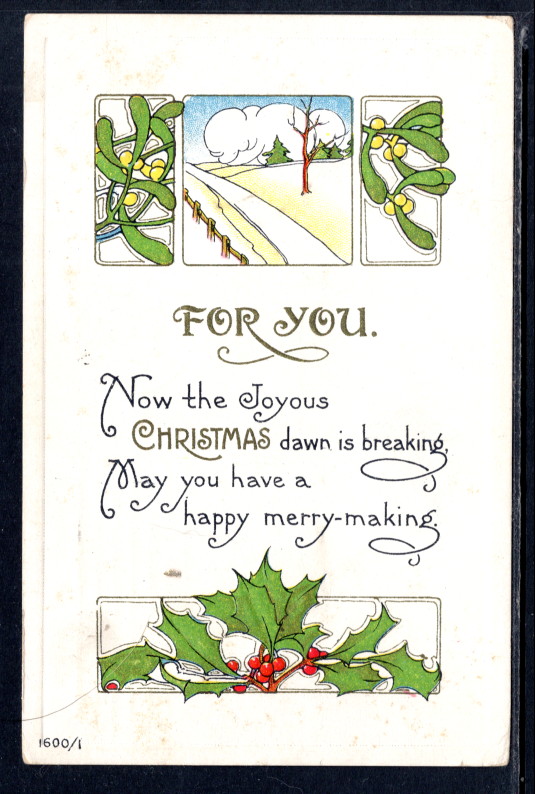 FOR YOU.
Now the Joyous
CHRISTMAS dawn is breaking,
May you have a
happy merry-making.
1600/1